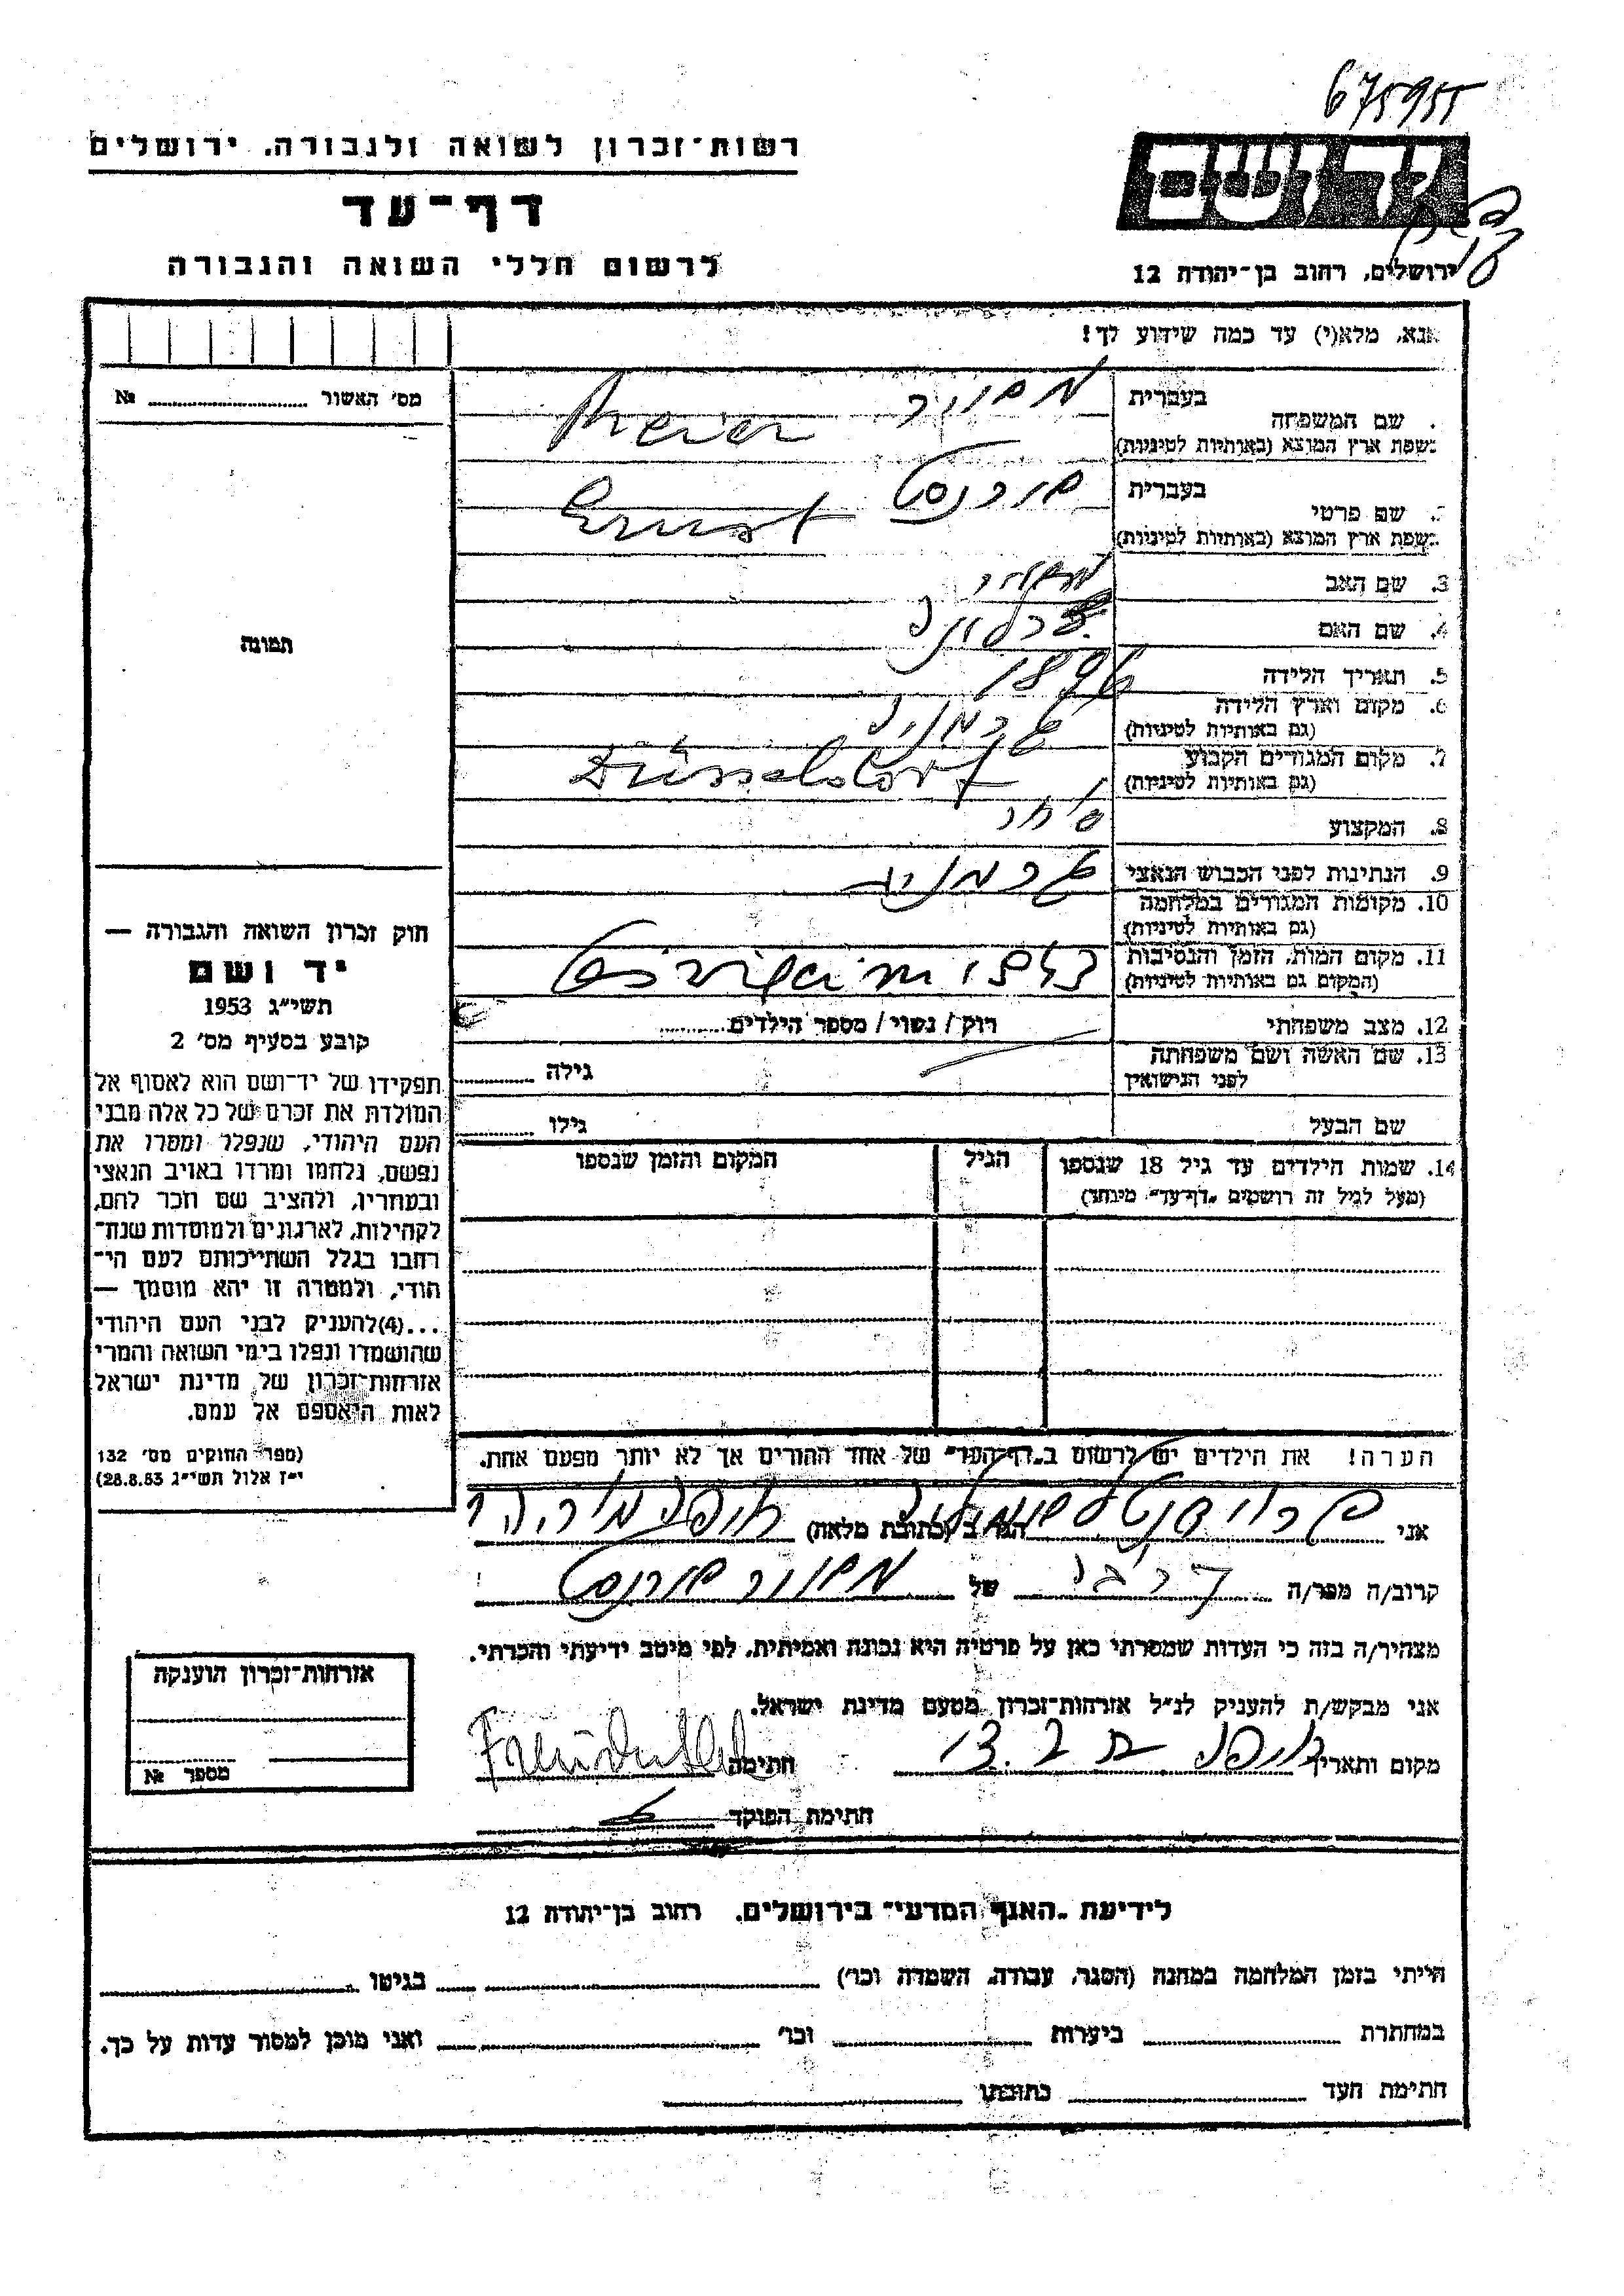 675955
רשות־זכרון לשואה ולגבורה. ירושלים
דף־עד
לרשום חללי השואה והגבורה
יד ושם
ירושלים, רחוב בן־יהודה 12
אנא, מלא(י) עד כמה שידוע לך!
מס׳ האשור № 
שם המשפחה
בעברית
מאיר
בשפת ארץ המוצא (באותיות לטיניות)
Meier
שם פרטי
בעברית
ארנסט
בשפת ארץ המוצא (באותיות לטיניות)
Ernst
3. שם האב
4. שם האם
5. תאריך הלידה 1896
6. מקום וארץ הלידה
(גם באותיות לטיניות)
גרמניה
7. מקום המגורים הקבוע
(גם באותיות לטיניות)
Düsseldorf
8. המקצוע סוחר
9. הנתינות לפני הכבוש הנאצי גרמניה
10. מקומות המגורים במלחמה
(גם באותיות לטיניות)
11. מקום המות, הזמן והנסיבות
(המקום גם באותיות לטיניות)
12. מצב משפחתי רוק / נשוי / מספר הילדים
13. שם האשה ושם משפחתה
לפני הנישואין
גילה
שם הבעל גילו
14. שמות הילדים עד גיל 18 שנספו
(מעל לגיל זה רושמים „דף־עד״ מיוחד)
הגיל
המקום והזמן שנספו
הערה! את הילדים יש לרשום ב„דף־העד״ של אחד ההורים אך לא יותר מפעם אחת.
תמונה
חוק זכרון השואה והגבורה —
יד ושם
תשי״ג 1953
קובע בסעיף מס׳ 2
תפקידו של יד־ושם הוא לאסוף אל
המולדת את זכרם של כל אלה מבני
העם היהודי, שנפלו ומסרו את
נפשם, נלחמו ומרדו באויב הנאצי
ובעוזריו, ולהציב שם וזכר להם,
לקהילות, לארגונים ולמוסדות שנח־
רחבו בגלל השתייכותם לעם הי־
הודי, ולמטרה זו יהא מוסמך —
...(4)להעניק לבני העם היהודי
שהושמדו ונפלו בימי השואה והמרי
אזרחות־זכרון של מדינת ישראל
לאות היאספם אל עמם.
(ספר החוקים מס׳ 132
י״ז אלול תשי״ג 28.8.53)
אני פרוידנטל הגר ב (כתובת מלאה) חיפה
קרוב/ה מכר/ה של מאיר ארנסט
מצהיר/ה בזה כי העדות שמסרתי כאן על פרטיה היא נכונה ואמיתית, לפי מיטב ידיעתי והכרתי.
אני מבקש/ת להעניק לנ״ל אזרחות־זכרון מטעם מדינת ישראל.
מקום ותאריך חיפה חתימה Freudenthal
חתימת הפוקד
אזרחות־זכרון הוענקה
מספר №
לידיעת „האגף המדעי״ בירושלים, רחוב בן־יהודה 12
הייתי בזמן המלחמה במחנה (הסגר, עבודה, השמדה וכו׳) בגיטו
במחתרת ביערות וכו׳ ואני מוכן למסור עדות על כך.
חתימת העד כתובתו